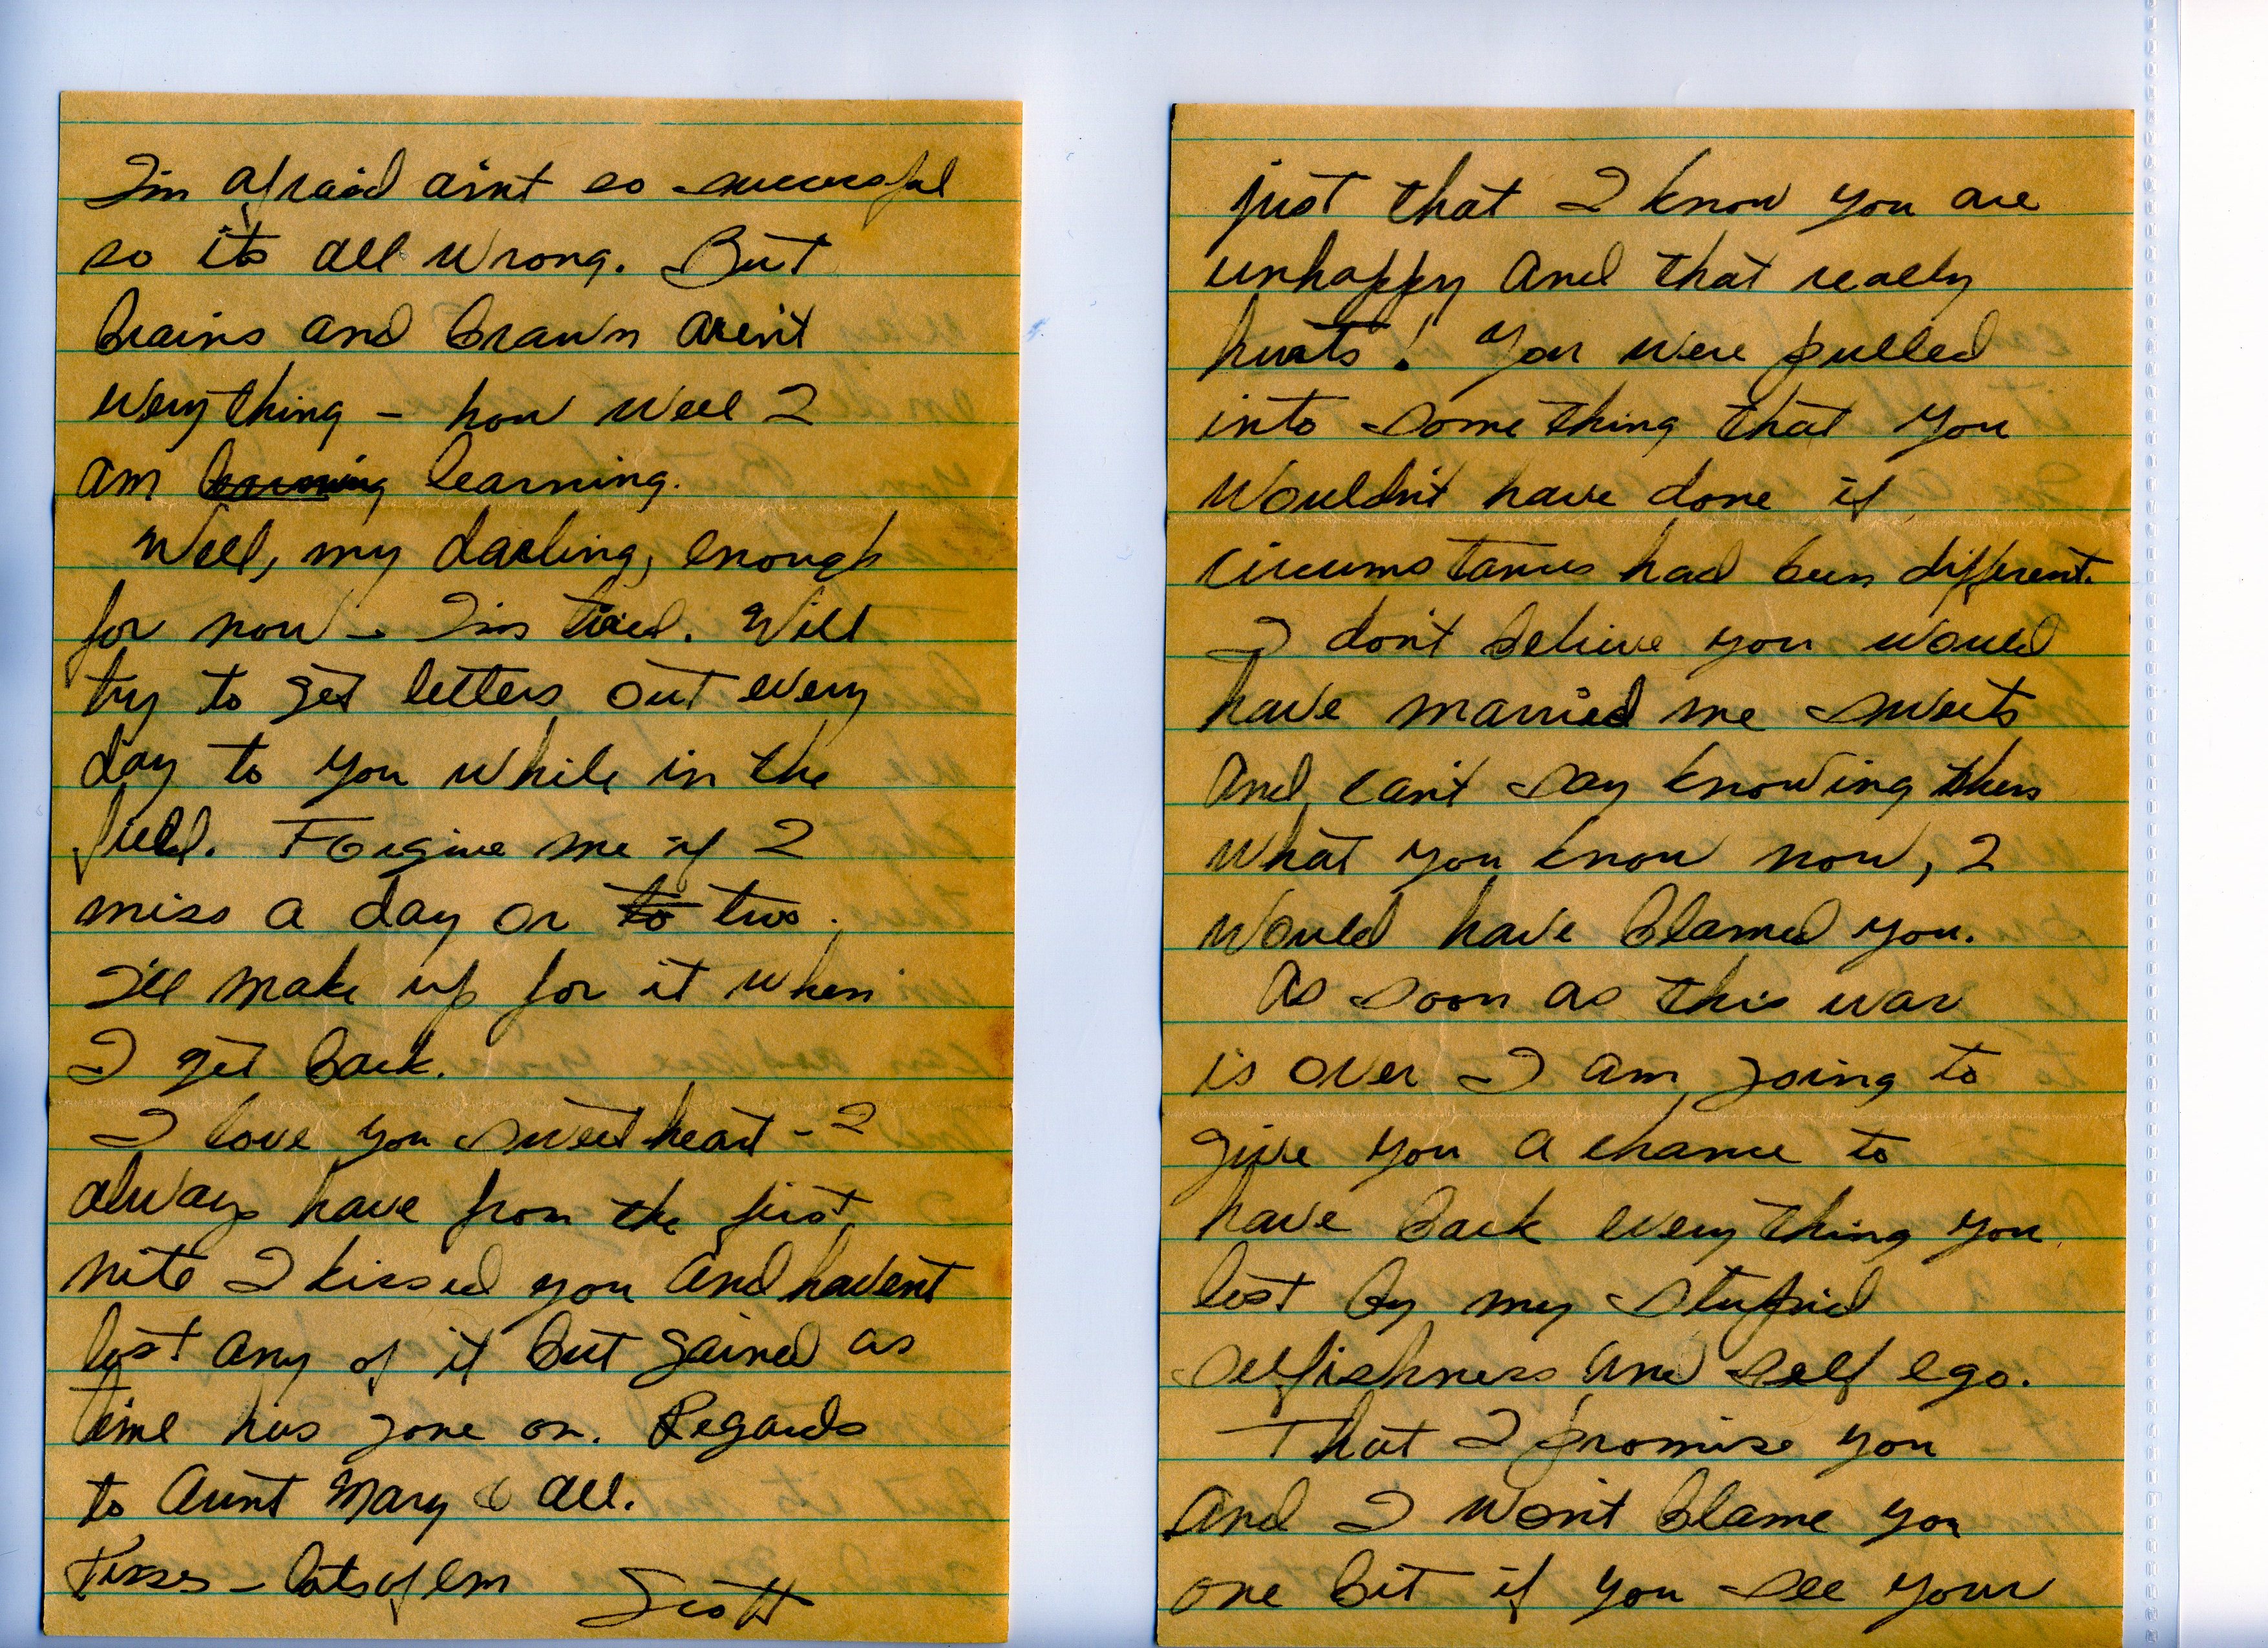 I'm afraid ain't so successful
so its all wrong. But
brains and brawn aren't
everything – how well I
am learning.
Well, my darling, enough
for now – I'm tired. Will
try to get letters out every
day to you while in the
field. Forgive me if I
miss a day or to two.
I'll make up for it when
I get back.
I love you sweetheart – I
always have from the first
nite I kissed you and haven't
lost any of it but gained as
time has gone on. Regards
to Aunt Mary & all.
Kisses – lots of em
Scott
just that I know you are
unhappy and that really
hurts! You were pulled
into something that you
wouldn't have done if
circumstances had been different.
I don't believe you would
have married me sweets
and can't say knowing then
what you know now, I
would have blamed you.
As soon as this war
is over I am going to
give you a chance to
have back everything you
lost by my stupid
selfishness and self ego.
That I promise you
and I won't blame you
one bit if you see your